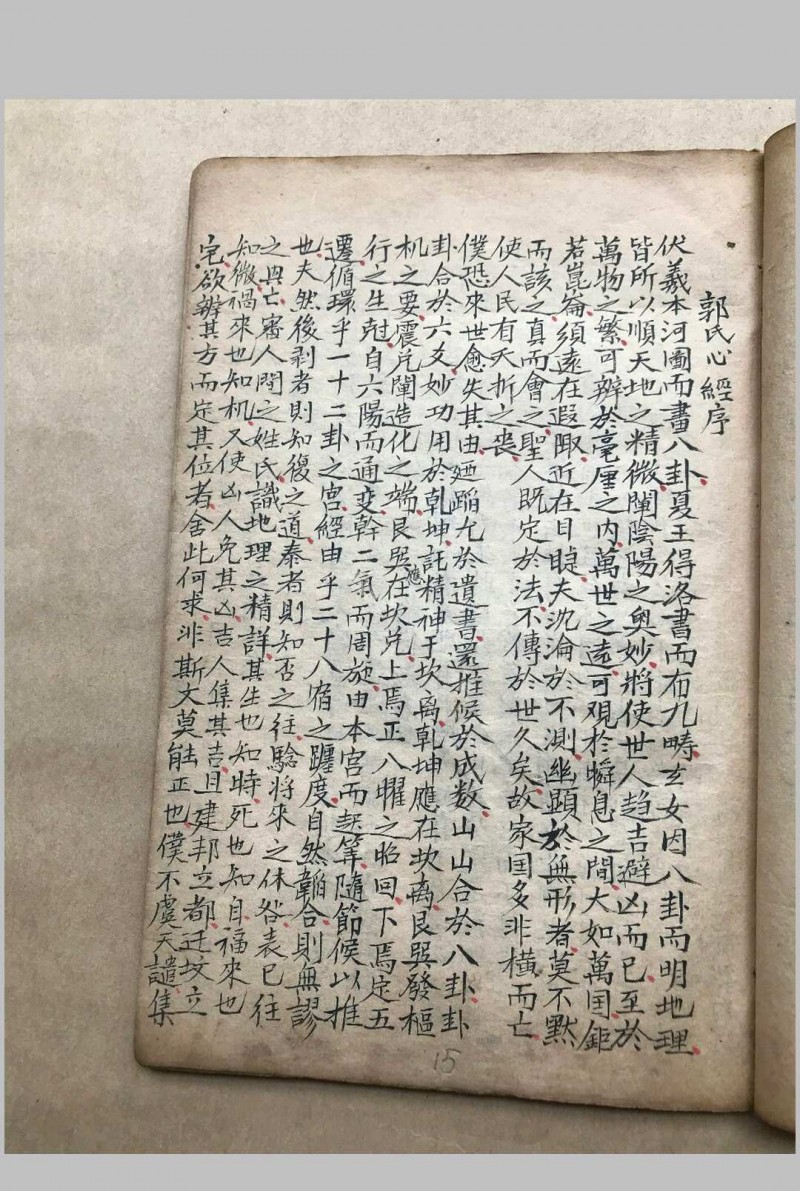 郭氏心經序
伏羲本河圖而畫八卦夏王得洛書而布九疇玄女因八卦而明地理
皆所以順天地之精微闡陰陽之奧妙將使世人趨吉避凶而已至於
萬物之繁可辨於毫厘之內萬世之遠可觀於瞬息之間大如萬国鉅
若崑崙須遠在遐陬近在目睫夫沉淪於不測幽顕於無形者莫不黙
而該之真而會之聖人既定於法不傳於世久矣故家国多非橫而亡
使人民有夭折之喪
僕恐來世愈失其由廼蹈尤於遺書還推候於成数山山合於八卦卦
卦合於六爻妙功用於乾坤託精神于坎离乾坤應在坎离艮巽發樞
机之要震兌闡造化之端艮巽應在坎兌上焉正八曜之昭回下焉定五
行之生尅自六陽而通变幹二氣而周旋由本宮而起筭隨節候以推
遷循環乎一十二卦之宮經由乎二十八宿之躔度自然韜合則無謬
也夫然後剥者則知復之道泰者則知否之往騐將來之休咎表已往
之與亡審人間之姓氏識地理之精詳其生也知時死也知自福來也
知微禍來也知机又使凶人免其凶吉人集其吉且建邦立都迁坟立
宅欲辨其方而定其位者舍此何求非斯文莫能正也僕不虞天譴集
15